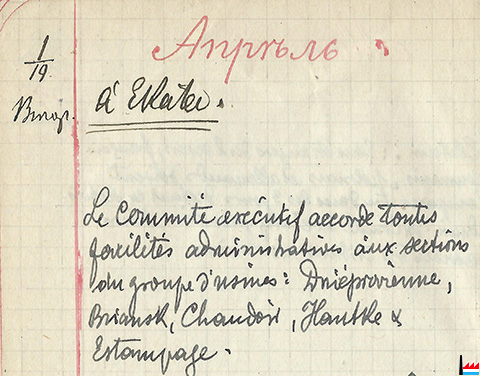 Апрѣль
1/19.
Втор.
à Ekate.
Le Commité exécutif accorde toutes
facilités administratives aux sections
du groupe d'usines: Dniéprovienne,
Briansk, Chaudoir, Hantke &
Estampage.